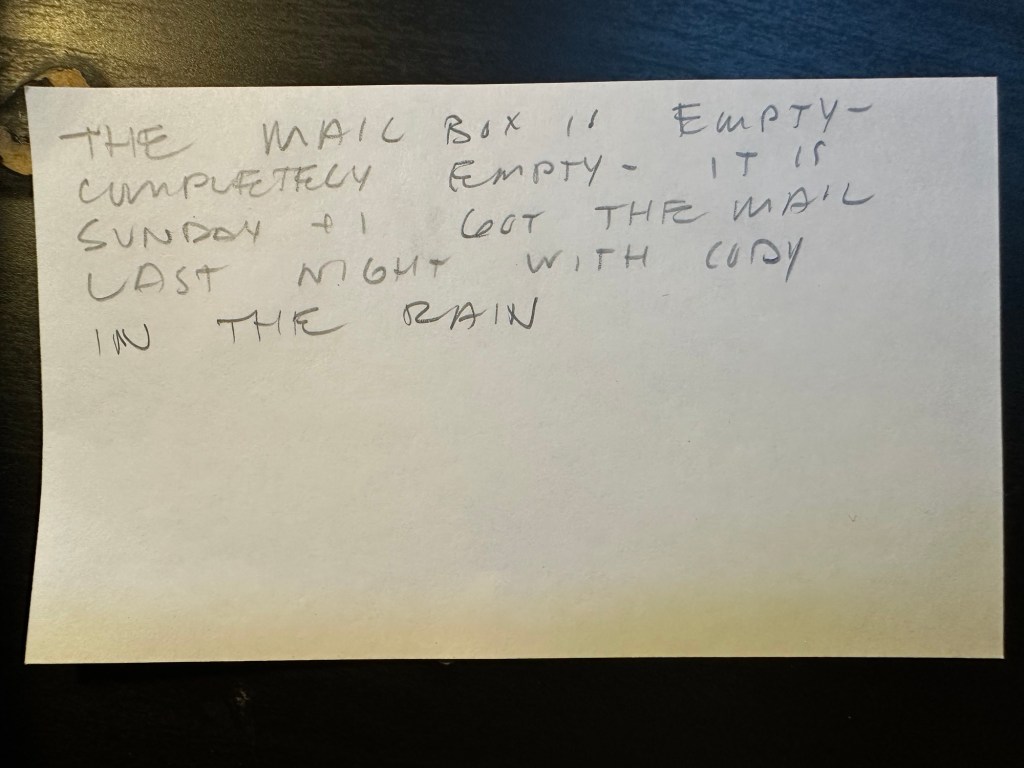 THE MAIL BOX IS EMPTY-
COMPLETELY EMPTY- IT IS
SUNDAY + I GOT THE MAIL
LAST NIGHT WITH CODY
IN THE RAIN